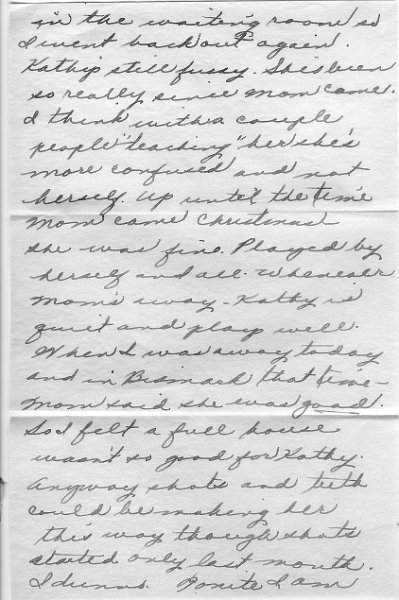 in the waiting room so
I went back out again.
Kathy still fussy. She's been
so really since Mom came.
I think with a couple
people "teaching" her she's
more confused and not
herself. Up until the time
Mom came Christmas
she was fine. Played by
herself and all. Whenever
Mom's away - Kathy is
quiet and plays well.
When I was away today
and in Bismark that time -
Mom said she was good.
So I felt a full house
wasn't so good for Kathy.
Anyway shots and teeth
could be making her
this way though shots
started only last month.
I dunno. Tonite I am